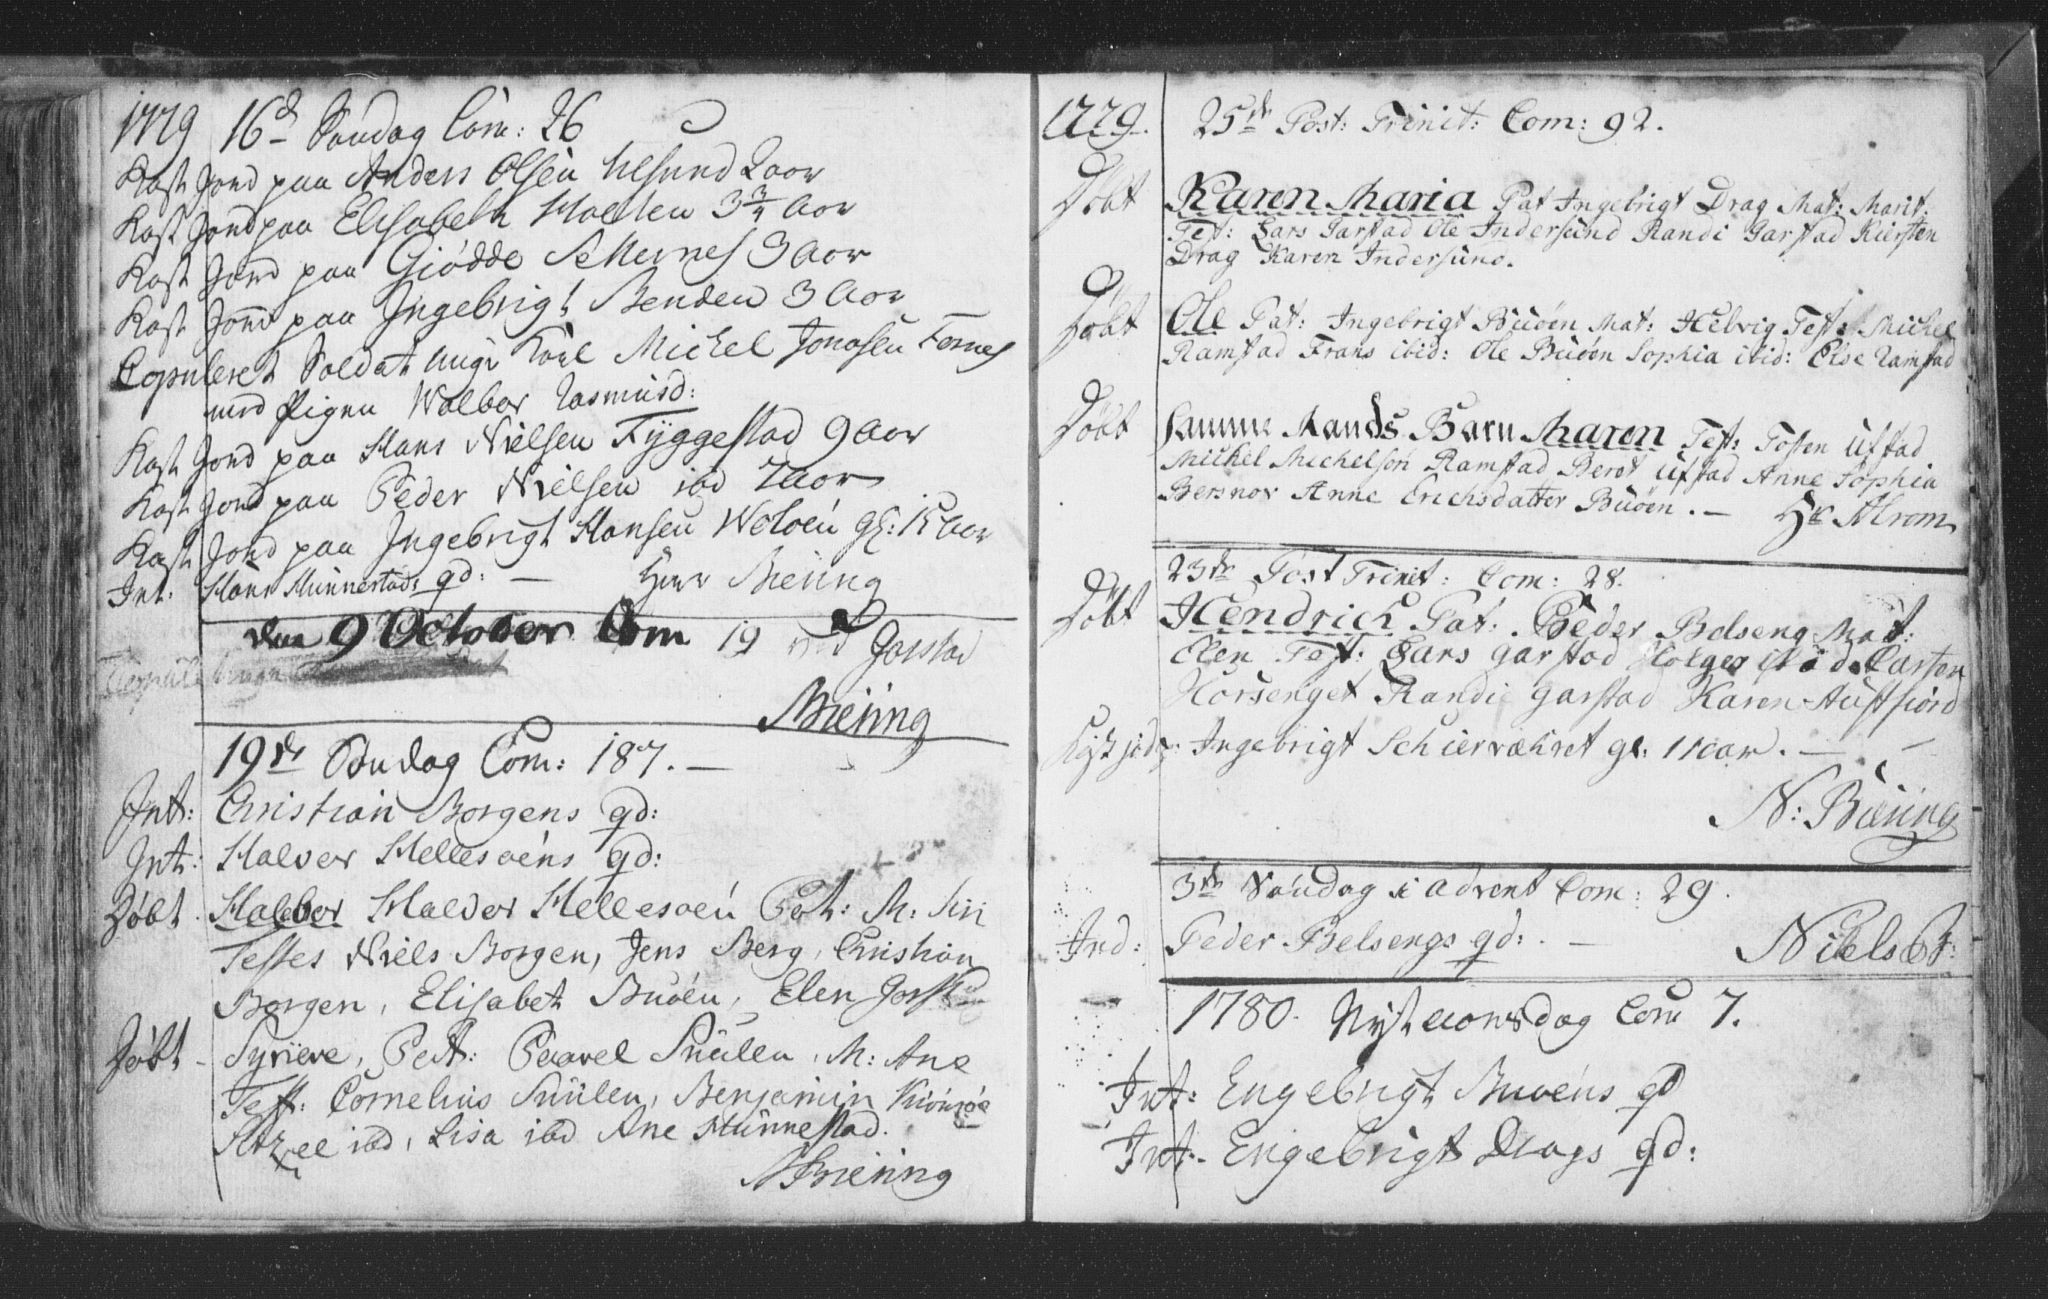 1779 16de Søndag Com: 26
Kast Jord paa Anders Olsen Ulsund 2 aar
Kast Jord paa Elisabeth 3 3/4 Aar
Kast Jord paa Giødde Setternes 3 Aar
Kast Jord paa Ingebrigt Benden 3 Aar
Copuleret Soldat unge Karl Michel Jonasen Fornes
med Pigen Wolbor Rasmusd:
Kast Jord paa Hans Nielsen Tyggestad 9 Aar
Kast Jord paa Peder Nielsen ibd 7 Aar
Kast Jord paa Ingebrigt Hansen Woloen gl: 15 Aar
Int: Hans Hunnestads qd: — Herr Biering
den 9 October Com 19 ved Jorstad
Biering
19de Søndag Com: 187. —
Int: Christian Borgens qd:
Int: Halvor Hellesøens qd:
Døbt Halvor Halvor Hellesøen Pat: M: Siri
Testes Niels Borgen, Jens Berg, Christian
Borgen, Elisabet Buøen, Elen
Døbt Syneve, Pat: Paavel Suulen, M: Ane
Test: Cornelius Suulen, Benjamin
ibd, Lisa ibd Ane Hunnestad.
N Biering
1779. 25de Post: Trinit: Com: 92.
Døbt Karen Maria Pat Ingebrigt Drag Mat: Marit:
Test: Lars Garstad Ole Indersund Randi Garstad Kirsten
Drag Karen Indersund.
Døbt Ole Pat: Ingebrigt Buøen Mat: Helvig Test: Michel
Ramstad Frans ibid: Ole Buøen Sophia ibid: Else Ramstad
Døbt Samme Mands Barn Maren Test: Tosten Ufstad
Michel Michelson Ramstad Beret Ufstad Anne Sophia
Bersnov Anne Erichsdatter Buøen. — Hr Strom
23de Post Trinit: Com: 28.
Døbt Hendrich Pat: Peder Belseng Mat:
Elen Test: Lars Garstad Holger ibid Carsten
Horsenget Randi Garstad Karen Austfiord
Ingebrigt Schiervæhret gl: 11 aar. —
N: Biering
3de Søndag i Advent Com: 29.
Ind: Peder Belsengs qd: . — Niels B:
1780. Nytaarsdag Com 7.
Int: Engebrigt Buøens qd
Int: Engebrigt Drags qd: